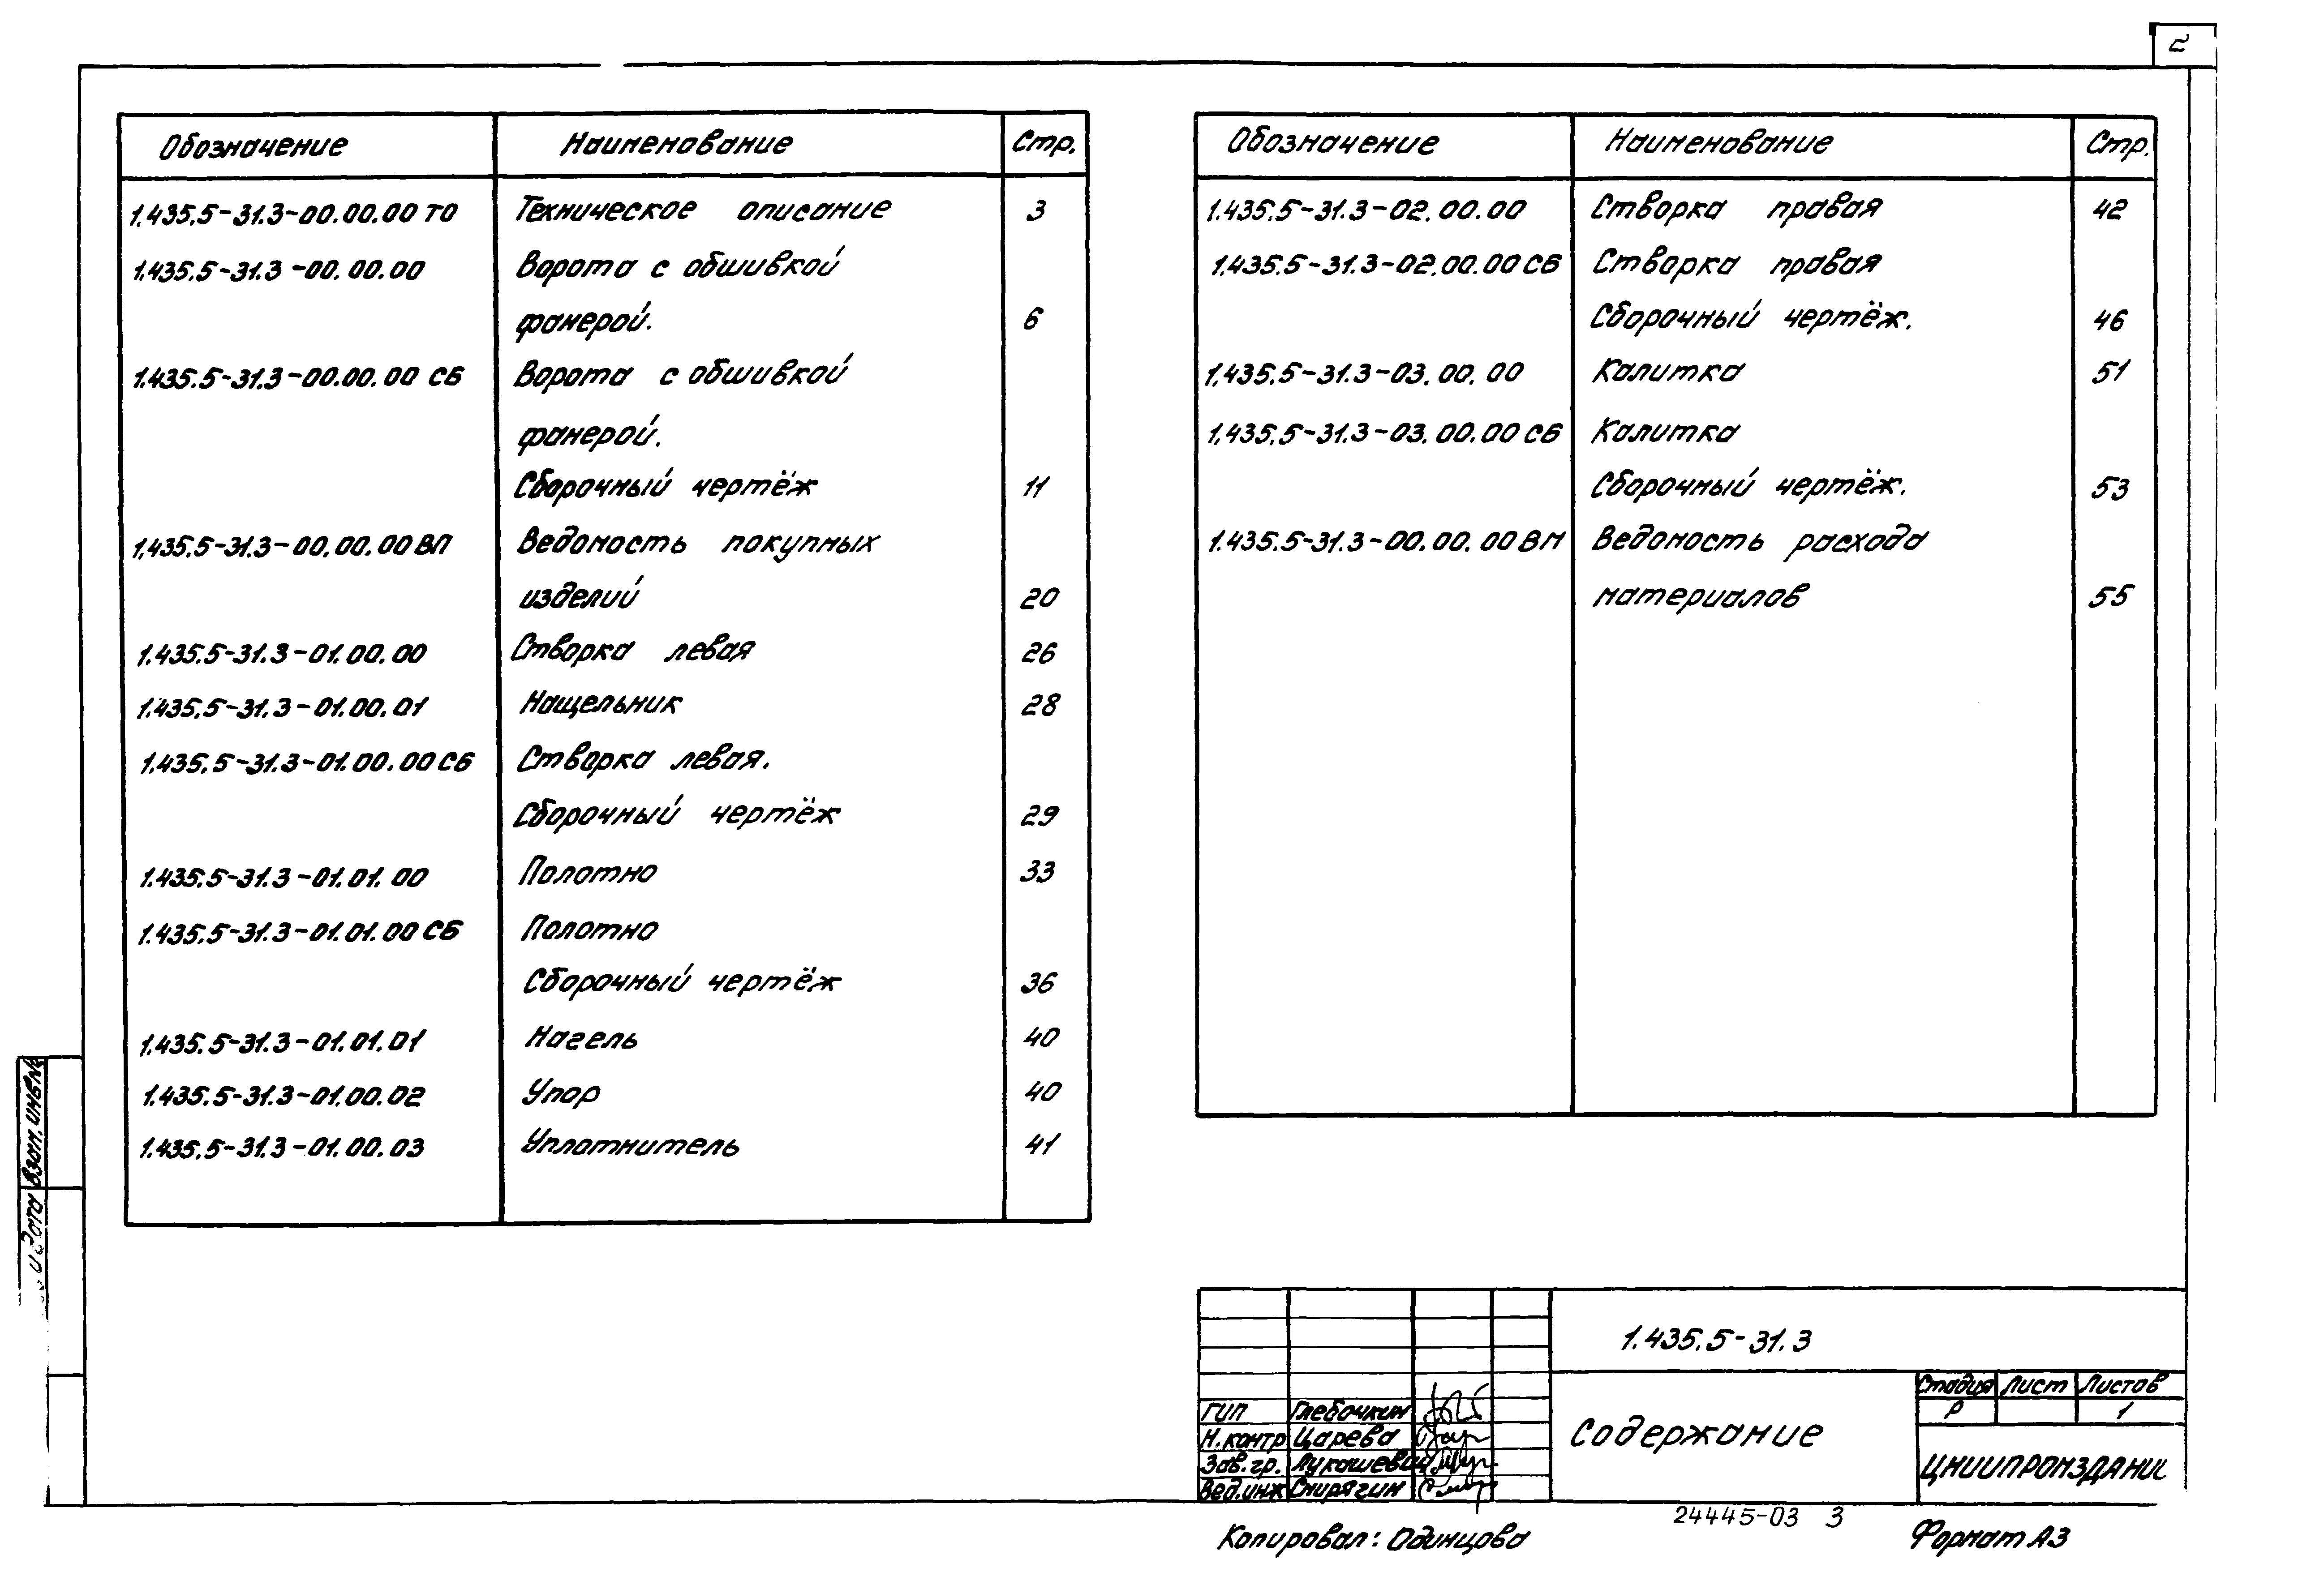 2
Обозначение Наименование Стр.
1.435.5-31.3-00.00.00 ТО Техническое описание 3
1.435.5-31.3-00.00.00 Ворота с обшивкой
фанерой. 6
1.435.5-31.3-00.00.00 СБ Ворота с обшивкой
фанерой.
Сборочный чертёж 11
1.435.5-31.3-00.00.00 ВП Ведомость покупных
изделий 20
1.435.5-31.3-01.00.00 Створка левая 26
1.435.5-31.3-01.00.01 Нащельник 28
1.435.5-31.3-01.00.00 СБ Створка левая.
Сборочный чертёж 29
1.435.5-31.3-01.01.00 Полотно 33
1.435.5-31.3-01.01.00 СБ Полотно
Сборочный чертёж 36
1.435.5-31.3-01.01.01 Нагель 40
1.435.5-31.3-01.00.02 Упор 40
1.435.5-31.3-01.00.03 Уплотнитель 41
Обозначение Наименование Стр.
1.435.5-31.3-02.00.00 Створка правая 42
1.435.5-31.3-02.00.00 СБ Створка правая
Сборочный чертёж. 46
1.435.5-31.3-03.00.00 Калитка 51
1.435.5-31.3-03.00.00 СБ Калитка
Сборочный чертёж. 53
1.435.5-31.3-00.00.00 ВМ Ведомость расхода
материалов 55
Взам. инв.№
и дата
1.435.5-31.3
Содержание
Стадия Лист Листов
Р 1
ЦНИИПРОМЗДАНИЙ
ГИП Глебочкин
Н.контр Царева
Зав.гр. Лукашевич
Вед.инж Смирягин
24445-03 3
Копировал: Одинцова
Формат А3